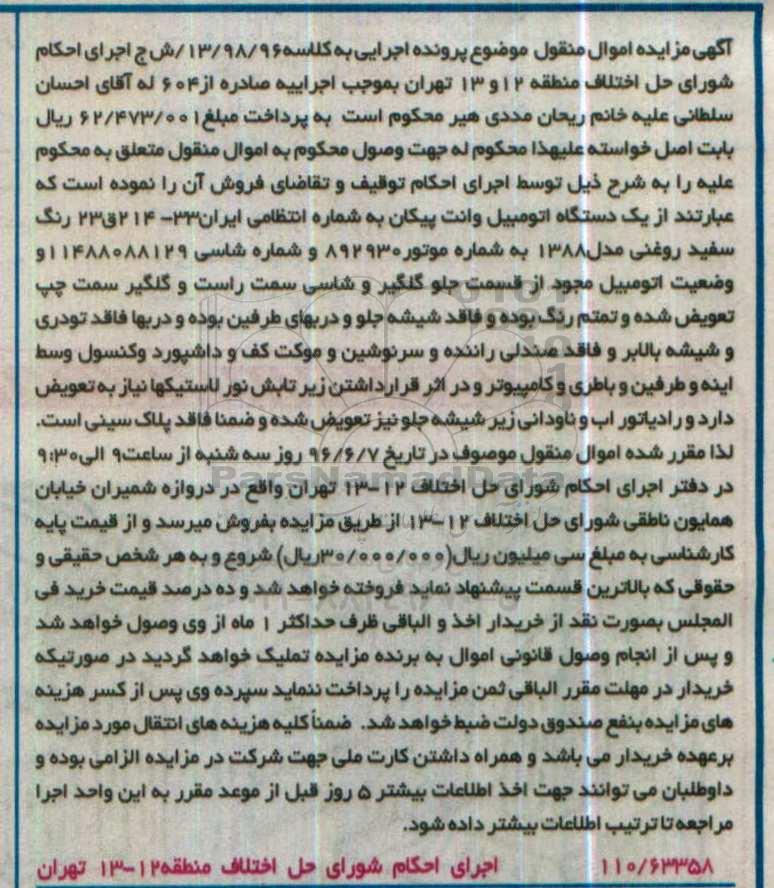 آگهی مزایده اموال منقول موضوع پرونده اجرایی به کلاسه ۱۳/۹۸/۹۶/ش ج اجرای احکام
شورای حل اختلاف منطقه ۱۲ و ۱۳ تهران بموجب اجراییه صادره از ۶۰۴ له آقای احسان
سلطانی علیه خانم ریحان مددی هیر محکوم است به پرداخت مبلغ ۶۲/۴۷۳/۰۰۱ ریال
بابت اصل خواسته علیهذا محکوم له جهت وصول محکوم به اموال منقول متعلق به محکوم
علیه را به شرح ذیل توسط اجرای احکام توقیف و تقاضای فروش آن را نموده است که
عبارتند از یک دستگاه اتومبیل وانت پیکان به شماره انتظامی ایران۳۳- ۲۱۴ق۲۳ رنگ
سفید روغنی مدل۱۳۸۸ به شماره موتور۸۹۲۹۳۰ و شماره شاسی ۱۱۴۸۸۰۸۸۱۲۹و
وضعیت اتومبیل مجود از قسمت جلو گلگیر و شاسی سمت راست و گلگیر سمت چپ
تعویض شده و تمتم رنگ بوده و فاقد شیشه جلو و دربهای طرفین بوده و دربها فاقد تودری
و شیشه بالابر و فاقد صندلی راننده و سرنوشین و موکت کف و داشپورد وکنسول وسط
اینه و طرفین و باطری و کامپیوتر و در اثر قرار داشتن زیر تابش نور لاستیکها نیاز به تعویض
دارد و رادیاتور اب و ناودانی زیر شیشه جلو نیز تعویض شده و ضمنا فاقد پلاک سینی است.
لذا مقرر شده اموال منقول موصوف در تاریخ ۹۶/۶/۷ روز سه شنبه از ساعت۹ الی۹:۳۰
در دفتر اجرای احکام شورای حل اختلاف ۱۲-۱۳ تهران واقع در دروازه شمیران خیابان
همایون ناطقی شورای حل اختلاف ۱۲-۱۳ از طریق مزایده بفروش میرسد و از قیمت پایه
کارشناسی به مبلغ سی میلیون ریال(۳۰/۰۰۰/۰۰۰ریال) شروع و به هر شخص حقیقی و
حقوقی که بالاترین قسمت پیشنهاد نماید فروخته خواهد شد و ده درصد قیمت خرید فی
المجلس بصورت نقد از خریدار اخذ و الباقی ظرف حداکثر ۱ ماه از وی وصول خواهد شد
و پس از انجام وصول قانونی اموال به برنده مزایده تملیک خواهد گردید در صورتیکه
خریدار در مهلت مقرر الباقی ثمن مزایده را پرداخت ننماید سپرده وی پس از کسر هزینه
های مزایده بنفع صندوق دولت ضبط خواهد شد. ضمناً کلیه هزینه های انتقال مورد مزایده
برعهده خریدار می باشد و همراه داشتن کارت ملی جهت شرکت در مزایده الزامی بوده و
داوطلبان می توانند جهت اخذ اطلاعات بیشتر ۵ روز قبل از موعد مقرر به این واحد اجرا
مراجعه تا ترتیب اطلاعات بیشتر داده شود.
۱۱۰/۶۳۳۵۸ اجرای احکام شورای حل اختلاف منطقه۱۲-۱۳ تهران
ParsNamadData